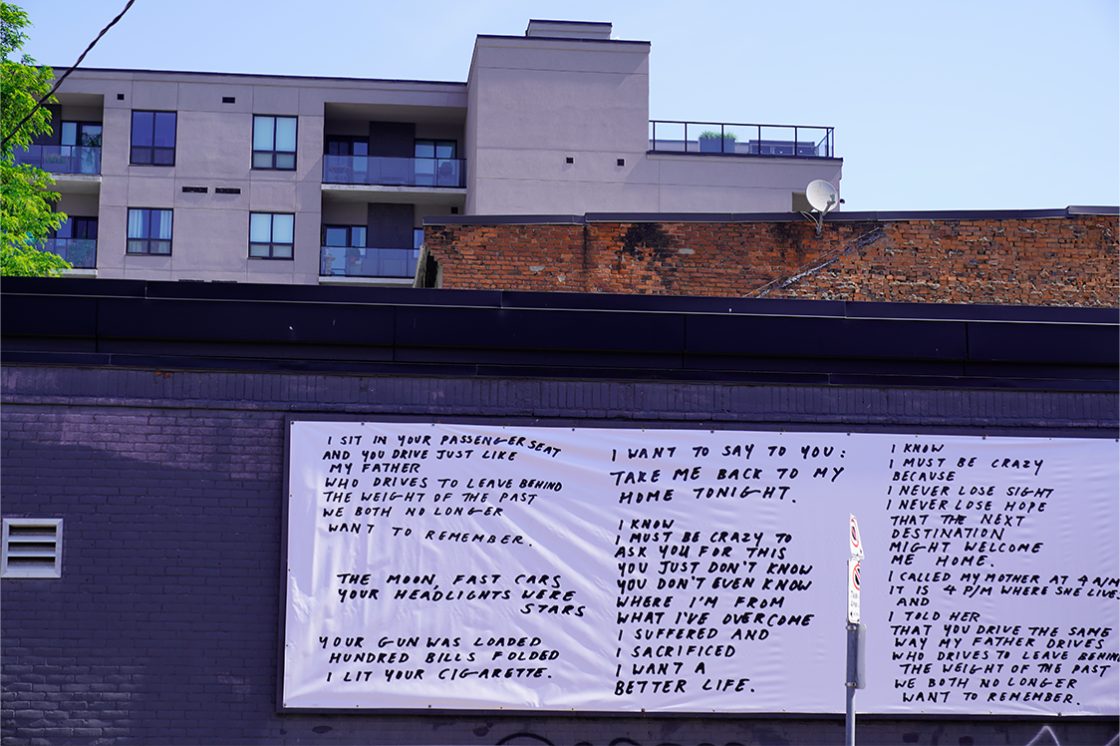 I SIT IN YOUR PASSENGER SEAT
AND YOU DRIVE JUST LIKE
MY FATHER
WHO DRIVES TO LEAVE BEHIND
THE WEIGHT OF THE PAST
WE BOTH NO LONGER
WANT TO REMEMBER.
THE MOON, FAST CARS
YOUR HEADLIGHTS WERE
STARS
YOUR GUN WAS LOADED
HUNDRED BILLS FOLDED
I LIT YOUR CIGARETTE.
I WANT TO SAY TO YOU:
TAKE ME BACK TO MY
HOME TONIGHT.
I KNOW
I MUST BE CRAZY TO
ASK YOU FOR THIS
YOU JUST DON'T KNOW
YOU DON'T EVEN KNOW
WHERE I'M FROM
WHAT I'VE OVERCOME
I SUFFERED AND
I SACRIFICED
I WANT A
BETTER LIFE.
I KNOW
I MUST BE CRAZY
BECAUSE
I NEVER LOSE SIGHT
I NEVER LOSE HOPE
THAT THE NEXT
DESTINATION
MIGHT WELCOME
ME HOME.
I CALLED MY MOTHER AT 4 A/M
IT IS 4 P/M WHERE SHE LIVES
AND
I TOLD HER
THAT YOU DRIVE THE SAME
WAY MY FATHER DRIVES
WHO DRIVES TO LEAVE BEHIN
THE WEIGHT OF THE PAST
WE BOTH NO LONGER
WANT TO REMEMBER.